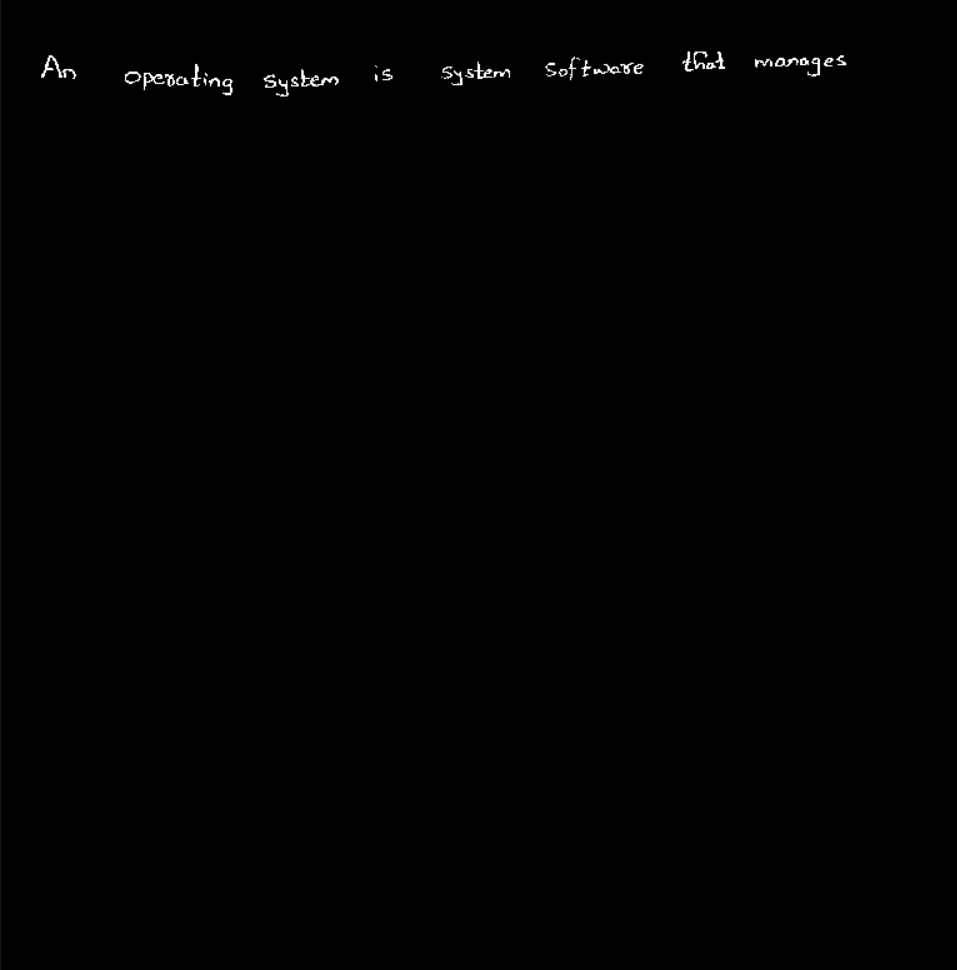 An operating system is system software that manages